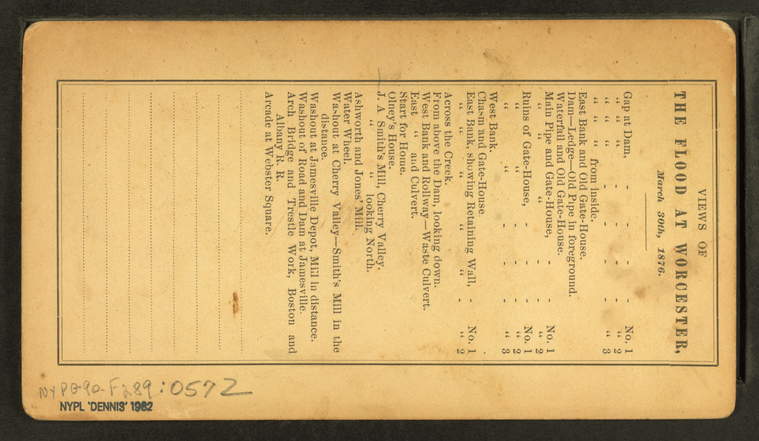 VIEWS OF
THE FLOOD AT WORCESTER,
March 30th, 1876.
Gap at Dam, - - - - No. 1
“ “ “ - - - - “ 2
“ “ “ - - - - “ 3
“ “ “ from inside.
East Bank and Old Gate-House.
Dam—Ledge—Old Pipe in foreground.
Waterfall and Old Gate-House.
Main Pipe and Gate-House, - - No. 1
“ “ “ “ - - “ 2
Ruins of Gate-House, - - - No. 1
“ “ - - - “ 2
“ “ - - - “ 3
West Bank.
Chasm and Gate-House
East Bank, showing Retaining Wall, - No. 1
“ “ “ “ “ - “ 2
Across the Creek.
From above the Dam, looking down.
West Bank and Rollway—Waste Culvert.
East “ and Culvert.
Start for Home.
Olney's House.
J. A Smith's Mill, Cherry Valley.
“ “ looking North.
Ashworth and Jones' Mill.
Water Wheel.
Washout at Cherry Valley—Smith's Mill in the
distance.
Washout at Jamesville Depot, Mill in distance.
Washout of Road and Dam at Jamesville.
Arch Bridge and Trestle Work, Boston and
Albany R. R.
Arcade at Webster Square.
NYPG-90-F289:0572
NYPL 'DENNIS' 1982